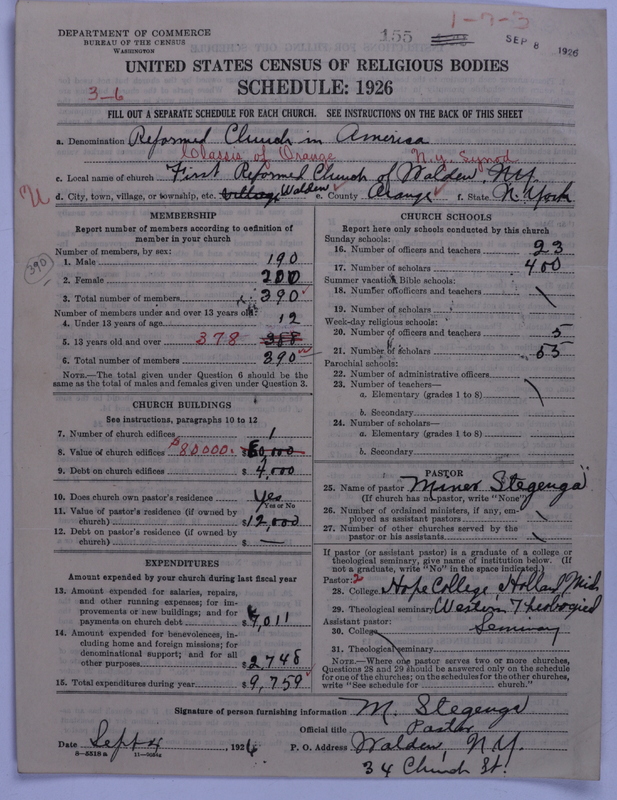 1-7-3
DEPARTMENT OF COMMERCE
BUREAU OF THE CENSUS
WASHINGTON
155
SEP 8 1926
UNITED STATES CENSUS OF RELIGIOUS BODIES
SCHEDULE: 1926
3-6
FILL OUT A SEPARATE SCHEDULE FOR EACH CHURCH. SEE INSTRUCTIONS ON THE BACK OF THIS SHEET
a. Denomination Reformed Church in America
Classis of Orange N.Y. Synod
c. Local name of church First Reformed Church of Walden, N.Y.
d. City, town, village, or township, etc. Village, Walden e. County Orange f. State N. York
MEMBERSHIP
Report number of members according to definition of member in your church
Number of members, by sex:
1. Male 190
390
2. Female 200
3. Total number of members 390
Number of members under and over 13 years old:
4. Under 13 years of age 12
5. 13 years old and over 378 388
6. Total number of members 390
NOTE.—The total given under Question 6 should be the same as the total of males and females given under Question 3.
CHURCH BUILDINGS
See instructions, paragraphs 10 to 12
7. Number of church edifices 1
8. Value of church edifices $80000. $ 80,000
9. Debt on church edifices $ 4,000
10. Does church own pastor's residence Yes
Yes or No
11. Value of pastor's residence (if owned by church) $ 12,000
12. Debt on pastor's residence (if owned by church) $ —
EXPENDITURES
Amount expended by your church during last fiscal year
13. Amount expended for salaries, repairs, and other running expenses; for improvements or new buildings; and for payments on church debt $ 7,011
14. Amount expended for benevolences, including home and foreign missions; for denominational support; and for all other purposes $ 2,748
15. Total expenditures during year $ 9,759
CHURCH SCHOOLS
Report here only schools conducted by this church
Sunday schools:
16. Number of officers and teachers 23
17. Number of scholars 400
Summer vacation Bible schools:
18. Number of officers and teachers
19. Number of scholars
Week-day religious schools:
20. Number of officers and teachers 5
21. Number of scholars 55
Parochial schools:
22. Number of administrative officers
23. Number of teachers—
a. Elementary (grades 1 to 8)
b. Secondary
24. Number of scholars—
a. Elementary (grades 1 to 8)
b. Secondary
PASTOR
25. Name of pastor Miner Stegenga
(If church has no pastor, write "None")
26. Number of ordained ministers, if any, employed as assistant pastors
27. Number of other churches served by the pastor or his assistants
If pastor (or assistant pastor) is a graduate of a college or theological seminary, give name of institution below. (If not a graduate, write "No" in the space indicated.)
Pastor: 2
28. College Hope College, Holland, Mich.
29. Theological seminary Western Theological
Assistant pastor: Seminary
30. College
31. Theological seminary
NOTE.—Where one pastor serves two or more churches, Questions 28 and 29 should be answered only on the schedule for one of the churches; on the schedules for the other churches, write "See schedule for church."
Signature of person furnishing information M. Stegenga
Official title Pastor
Date Sept 4 1926 P. O. Address Walden, N.Y.
8—5518 a
34 Church St.